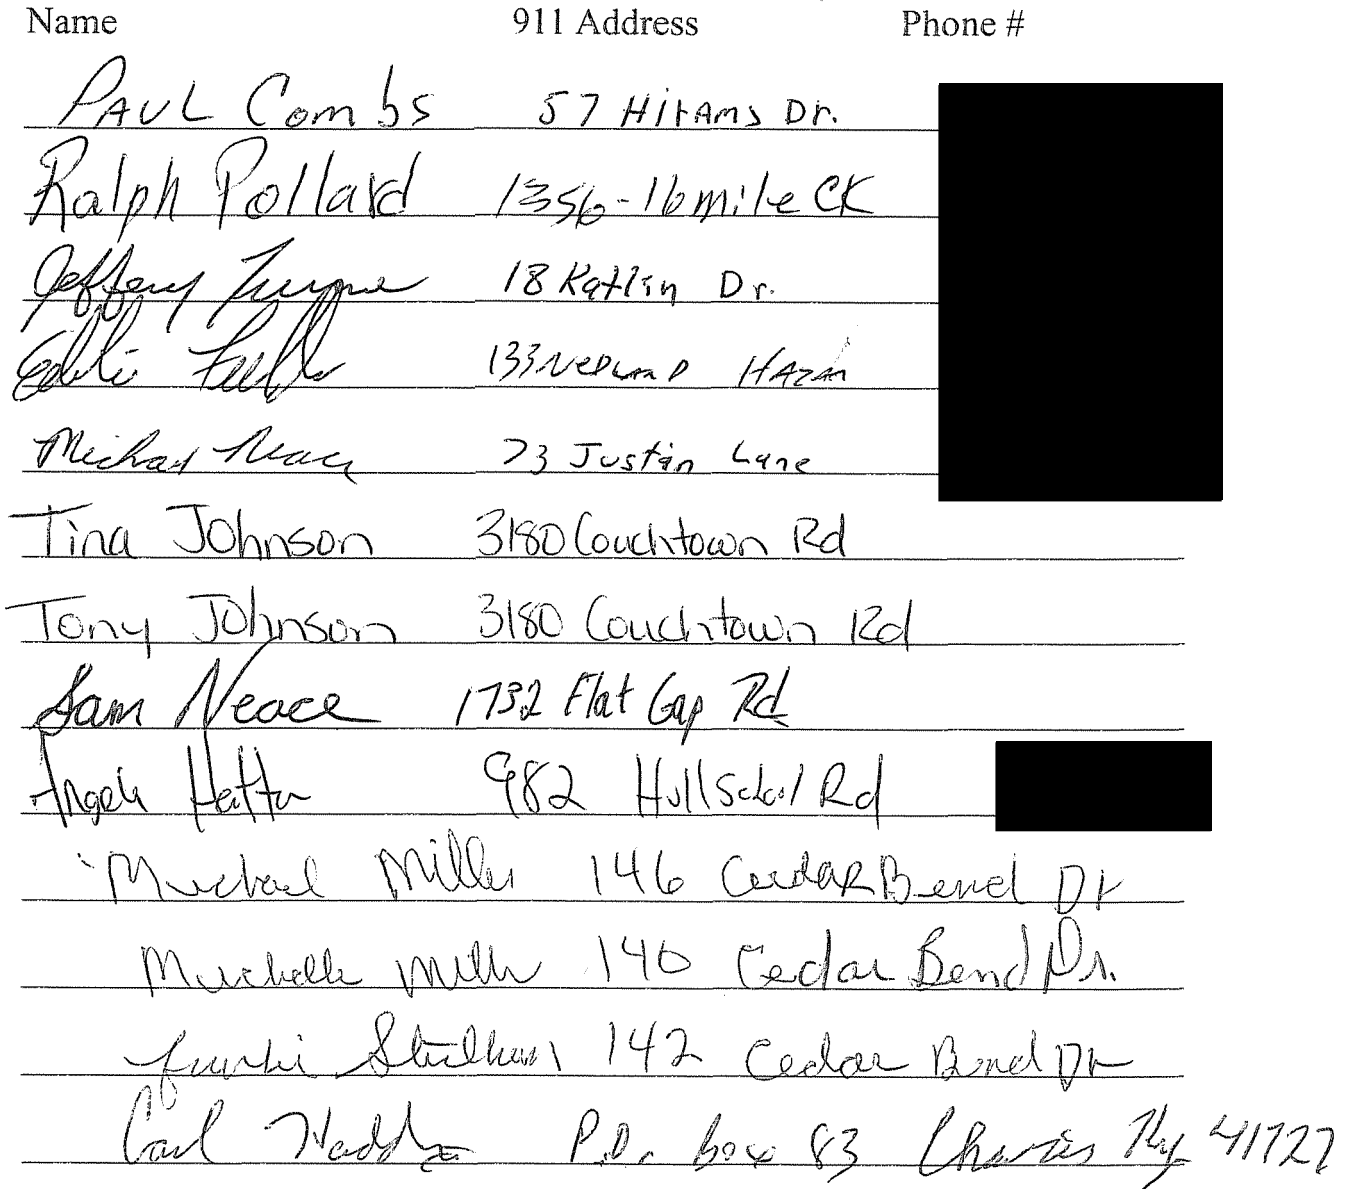 Name 911 Address Phone #
PAUL Combs 57 Hirams Dr.
Ralph Pollard 1356-16 mile CK
Jeffery 18 Katlin Dr.
Eddie 133
Michael Neace 73 Justin Lane
Tina Johnson 3180 Couchtown Rd
Tony Johnson 3180 Couchtown Rd
Sam Neace 1732 Flat Gap Rd
Angela 982 Hull School Rd
Michael Miller 146 Cedar Bend Dr
Michelle Miller 146 Cedar Bend Dr.
142 Cedar Bend Dr
Carl P.O. box 83 Ky 41727